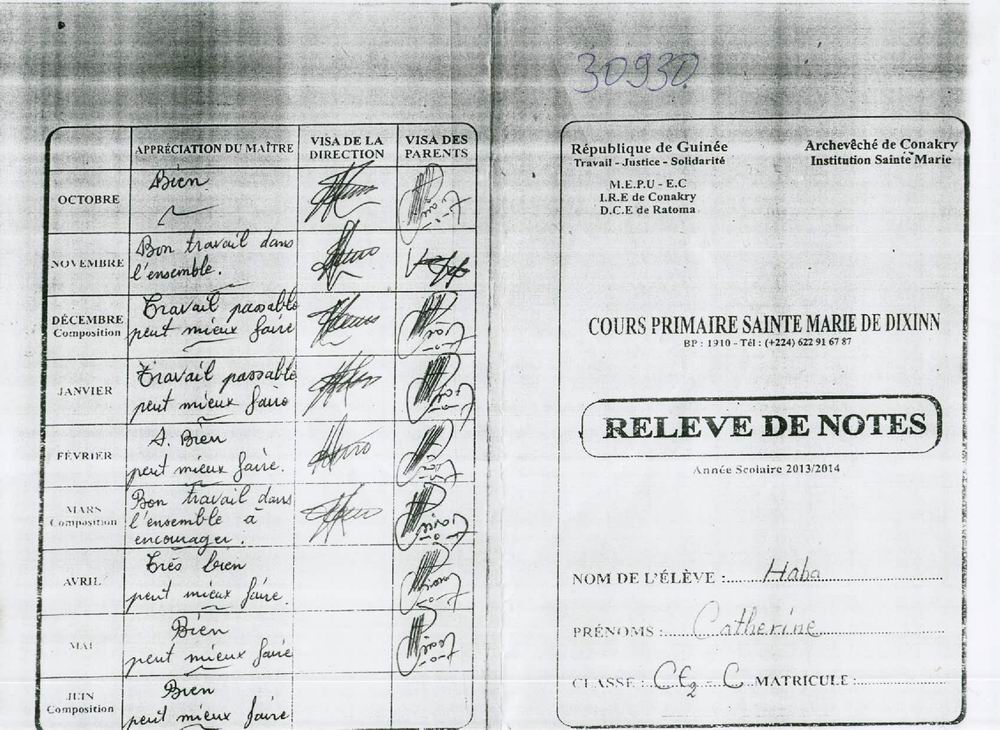 30930
APPRÉCIATION DU MAÎTRE
VISA DE LA
DIRECTION
VISA DES
PARENTS
OCTOBRE
Bien
NOVEMBRE
Bon travail dans
l'ensemble.
DÉCEMBRE
Composition
Travail passable
peut mieux faire
JANVIER
Travail passable
peut mieux faire
FÉVRIER
A. Bien
peut mieux faire.
MARS
Composition
Bon travail dans
l'ensemble à
encourager.
AVRIL
Très bien
peut mieux faire.
MAI
Bien
peut mieux faire
JUIN
Composition
Bien
peut mieux faire
République de Guinée
Travail - Justice - Solidarité
Archevêché de Conakry
Institution Sainte Marie
M.E.P.U - E.C
I.R.E de Conakry
D.C.E de Ratoma
COURS PRIMAIRE SAINTE MARIE DE DIXINN
BP : 1910 - Tél : (+224) 622 91 67 87
RELEVE DE NOTES
Année Scolaire 2013/2014
NOM DE L'ÉLÈVE : Haba
PRÉNOMS : Catherine
CLASSE : CE2 - C MATRICULE :